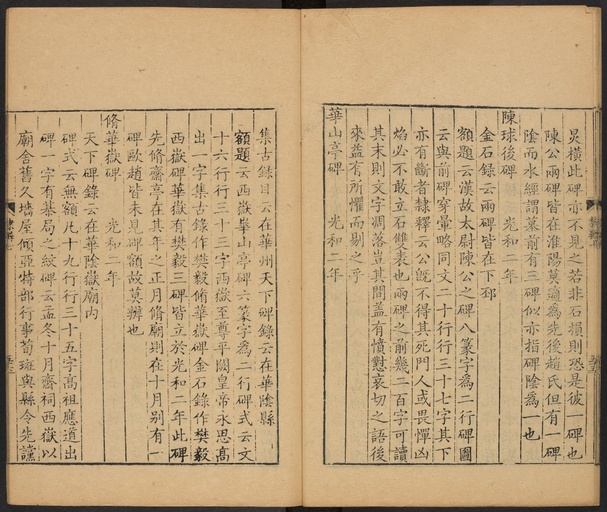 炅橫此碑亦不見之若非石損則恐是彼一碑也
陳公兩碑皆在淮陽莫適為先後趙氏但有一碑
陰而水經謂墓前有三碑似亦指碑陰為一也
陳球後碑 光和二年
金石錄云兩碑皆在下邳
額題云漢故太尉陳公之碑八篆字為二行碑圖
云與前碑穿暈略同文二十行行三十七字其下
亦有斷者隸釋云公旣不得其死門人或畏憚凶
焰必不敢立石雙表也兩碑之前幾二百字可讀
其末則文字凋落豈其間蓋有憤懟哀切之語後
來益有所懼而剔之乎
華山亭碑 光和二年
集古錄目云在華州天下碑錄云在華陰縣
額題云西嶽華山亭碑六篆字為二行碑式云文
十六行行三十三字西嶽至尊平闕皇帝永思高
出一字集古錄作樊毅脩華嶽碑金石錄作樊毅
西嶽碑華嶽有樊毅三碑皆立於光和二年此碑
先脩齋亭在其年之正月脩廟則在十月別有一
碑歐趙皆未見碑額故莫辨也
脩華嶽碑 光和二年
天下碑錄云在華陰嶽廟內
碑式云無額凡十九行行三十五字高祖應道出
碑一字有棊局之紋碑云孟冬十月齋祠西嶽以
廟舍舊久墻屋傾亞特部行事荀班與縣令先讜